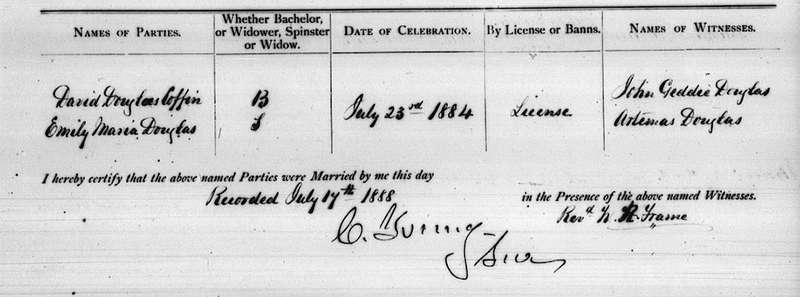 NAMES OF PARTIES. Whether Bachelor, or Widower, Spinster or Widow. DATE OF CELEBRATION. By License or Banns. NAMES OF WITNESSES.
David Douglas Coffin B John Geddie Douglas
July 23rd 1884 License
Emily Maria Douglas S Artemas Douglas
I hereby certify that the above named Parties were Married by me this day
Recorded July 17th 1888 in the Presence of the above named Witnesses.
Revd W. R. Frame
C. Young